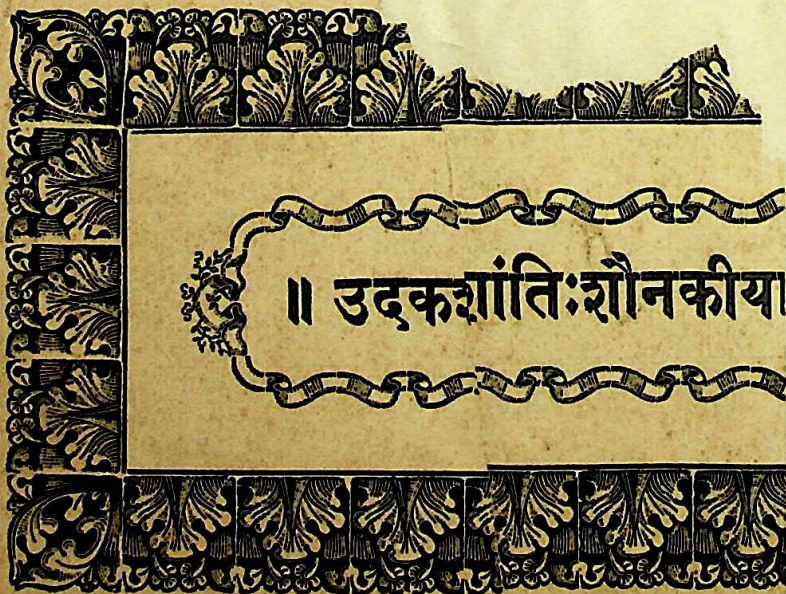 ॥ उदकशांतिःशौनकीया